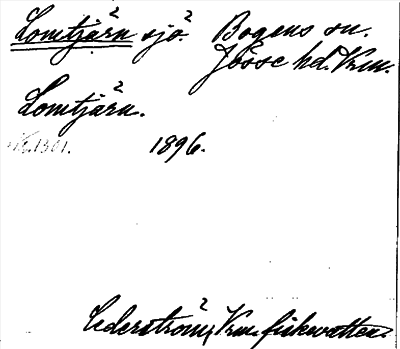 Lomtjärn sjö. Bogens sn.
Jösse hd. Vrm.
Lomtjärn.
1896.
Cederström, Vrm. fiskevatten.